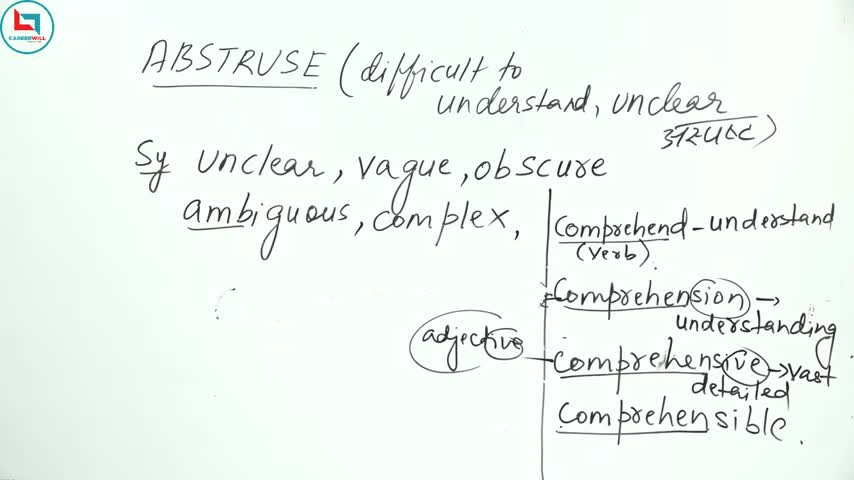 CAREERWILL
ABSTRUSE (difficult to
understand, unclear
अस्पष्ट)
Sy unclear, vague, obscure
ambiguous, complex,
comprehend - understand
(verb).
comprehension →
understanding
adjective
comprehensive → vast
detailed
comprehensible.